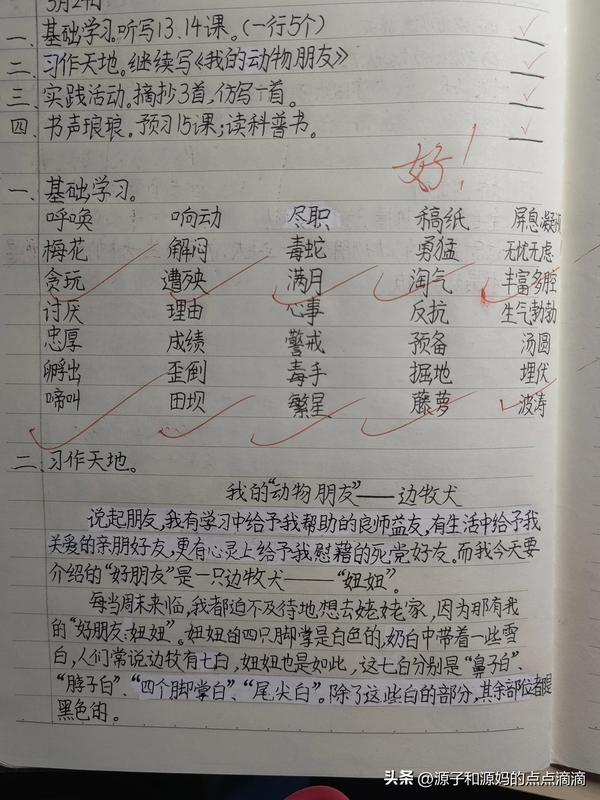 3月24日
一、基础学习。听写13.14课。(一行5个)
二、习作天地。继续写《我的动物朋友》
三、实践活动。摘抄3首,仿写一首。
四、书声琅琅。预习15课;读科普书。
好!
一、基础学习。
呼唤 响动 尽职 稿纸 屏息凝视
梅花 解闷 毒蛇 勇猛 无忧无虑
贪玩 遭殃 满月 淘气 丰富多腔
讨厌 理由 心事 反抗 生气勃勃
忠厚 成绩 警戒 预备 汤圆
孵出 歪倒 毒手 掘地 埋伏
啼叫 田坝 繁星 藤萝 波涛
二、习作天地。
我的“动物朋友”——边牧犬
说起朋友,我有学习中给予我帮助的良师益友,有生活中给予我
关爱的亲朋好友,更有心灵上给予我慰藉的死党好友。而我今天要
介绍的“好朋友”是一只边牧犬——“妞妞”。
每当周末来临,我都迫不及待地想去姥姥家,因为那有我
的“好朋友:妞妞”。妞妞的四只脚掌是白色的,奶白中带着一些雪
白,人们常说边牧有七白,妞妞也是如此,这七白分别是“鼻子白”、
“脖子白”、“四个脚掌白”、“尾尖白”。除了这些白的部分,其余部位都是
黑色的。
头条 @源子和源妈的点点滴滴